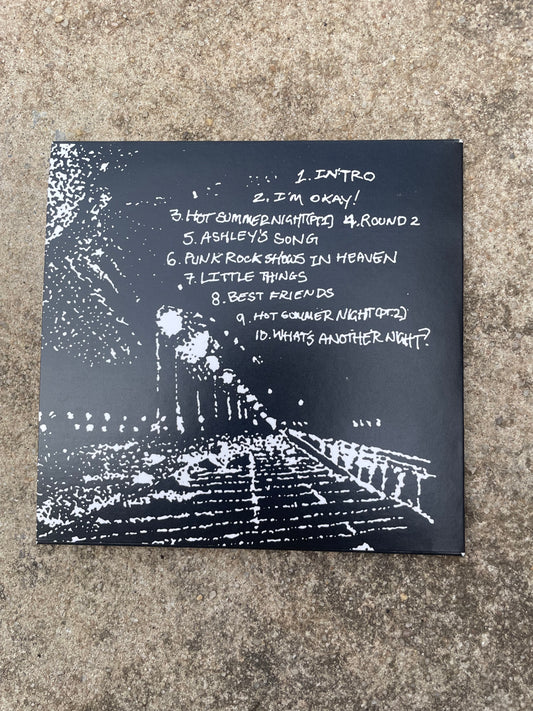 1. INTRO
2. I'M OKAY!
3. HOT SUMMER NIGHT (PT1) 4. ROUND 2
5. ASHLEY'S SONG
6. PUNK ROCK SHOWS IN HEAVEN
7. LITTLE THINGS
8. BEST FRIENDS
9. HOT SUMMER NIGHT (PT2)
10. WHAT'S ANOTHER NIGHT?